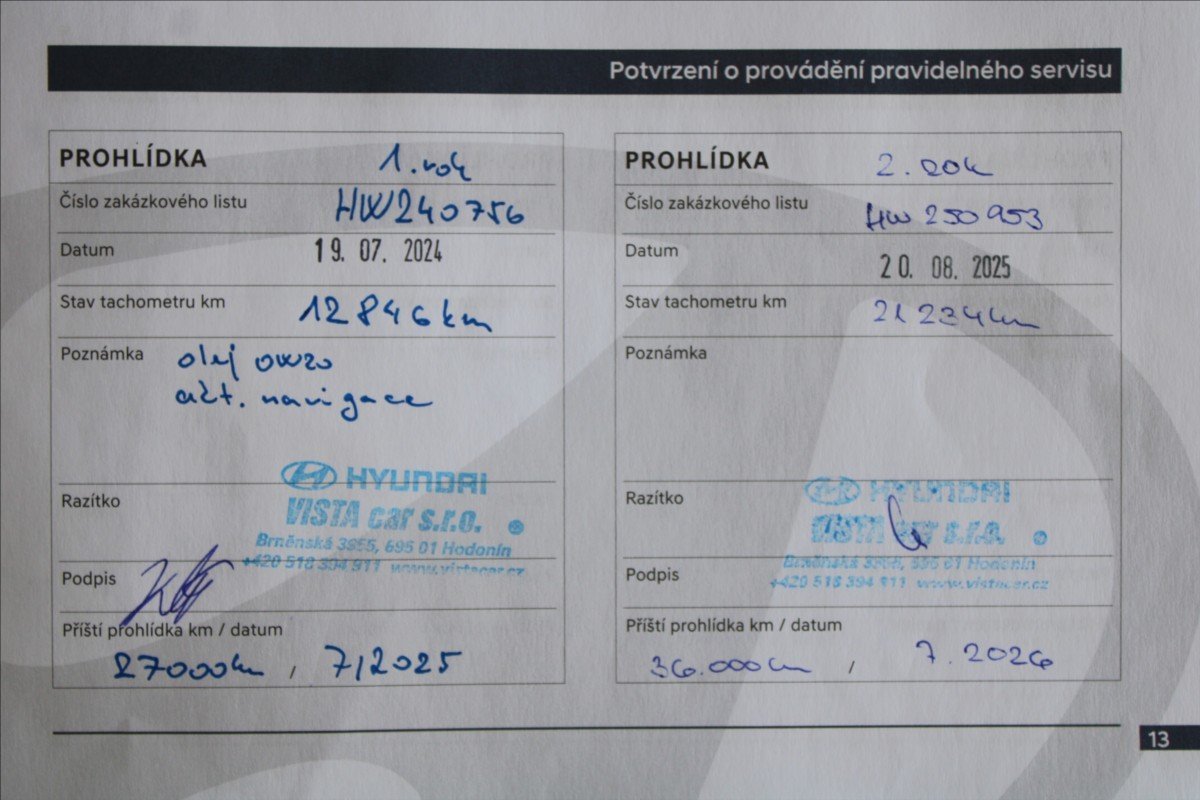 Potvrzení o provádění pravidelného servisu
PROHLÍDKA 1. rok
Číslo zakázkového listu HW240756
Datum 19. 07. 2024
Stav tachometru km 12846km
Poznámka olej 0W20
akt. navigace
Razítko HYUNDAI
VISTA car s.r.o.
Brněnská 3955, 695 01 Hodonín
+420 518 394 911 www.vistacar.cz
Podpis
Příští prohlídka km / datum
27000km / 7/2025
PROHLÍDKA 2. rok
Číslo zakázkového listu HW250953
Datum 20. 08. 2025
Stav tachometru km 21234km
Poznámka
Razítko HYUNDAI
VISTA car s.r.o.
Brněnská 3955, 695 01 Hodonín
+420 518 394 911 www.vistacar.cz
Podpis
Příští prohlídka km / datum
36.000km / 7.2026
13